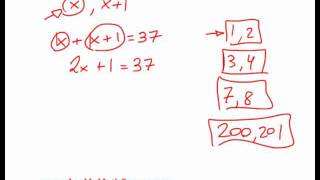 x, x+1
x + x+1 = 37
2x + 1 = 37
1, 2
3, 4
7, 8
200, 201